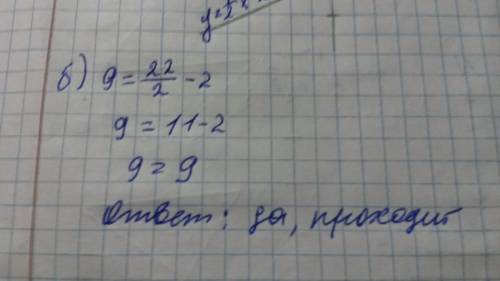 y = 1/2 x
б) 9 = 22/2 - 2
9 = 11 - 2
9 = 9
Ответ: да, проходит